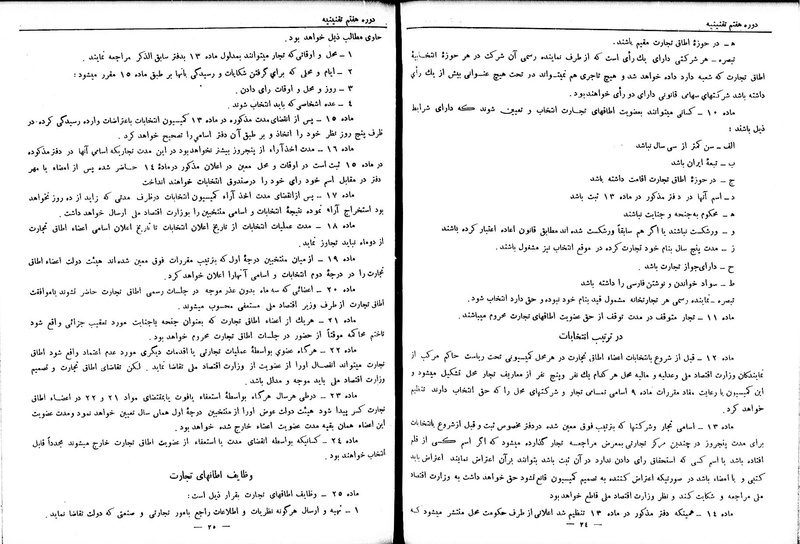 دوره هفتم تقنینیه
ه‍ ـ در حوزهٔ اطاق تجارت مقیم باشند.
تبصره ـ هر شرکتی دارای یك رأی است که از طرف نماینده رسمی آن شرکت در هر حوزهٔ انتخابیهٔ
اطاق تجارت که شعبه دارد داده خواهد شد و هیچ تاجری هم نمیتواند در تحت هیچ عنوانی بیش از یك رأی
داشته باشد شرکتهای سهامی قانونی دارای دو رأی خواهند بود.
ماده ۱۰ ـ کسانی میتوانند بعضویت اطاقهای تجارت انتخاب و تعیین شوند که دارای شرایط
ذیل باشند:
الف ـ سن کمتر از سی سال نباشد
ب ـ تبعهٔ ایران باشد
ج ـ در حوزهٔ اطاق تجارت اقامت داشته باشد
د ـ اسم آنها در دفتر مذکور در ماده ۱۳ ثبت باشد
ه‍ ـ محکوم بجنحه و جنایت نباشند
و ـ ورشکست نباشند یا اگر هم سابقاً ورشکست شده اند مطابق قانون اعاده اعتبار کرده باشند
ز ـ مدت پنج سال بنام خود تجارت کرده در موقع انتخاب نیز مشغول باشند.
ح ـ دارای جواز تجارت باشد.
ط ـ سواد خواندن و نوشتن فارسی را داشته باشد
تبصره ـ نماینده رسمی هر تجارتخانه مشمول قید بنام خود نبوده و حق دارد انتخاب شود.
ماده ۱۱ ـ تجار متوقف در مدت توقف از حق عضویت اطاقهای تجارت محروم میباشند.
در ترتیب انتخابات
ماده ۱۲ ـ قبل از شروع بانتخابات اعضاء اطاق تجارت در هر محل کمیسیونی تحت ریاست حاکم مرکب از
نمایندگان وزارت اقتصاد ملی وعدلیه و مالیه محل هر کدام یك نفر و پنج نفر از معاریف تجار محل تشکیل میشود و
این کمیسیون با رعایت مفاد مقررات ماده ۹ اسامی تمام تجار و شرکتهای محل را که حق انتخاب دارند تنظیم
خواهد کرد.
ماده ۱۳ ـ اسامی تجار وشرکتها که بترتیب فوق معین شده در دفتر مخصوص ثبت و قبل از شروع بانتخابات
برای مدت پنجروز در چندین مرکز تجارتی بمعرض مراجعه تجار گذارده میشود که اگر اسم کسی از قلم
افتاده باشد یا اسم کسی که استحقاق رای دادن ندارد در آن ثبت باشد بتوانند برآن اعتراض نمایند اعتراض باید
کتبی و با امضاء باشد در صورتیکه اعتراض کننده به تصمیم کمیسیون قانع نشود حق خواهد داشت به وزارت اقتصاد
ملی مراجعه و شکایت کند و نظر وزارت اقتصاد ملی قاطع خواهد بود
ماده ۱۴ ـ همینکه دفتر مذکور در ماده ۱۳ تنظیم شد اعلانی از طرف حکومت محل منتشر میشود که
ـ ۲۴ ـ
دوره هفتم تقنینیه
حاوی مطالب ذیل خواهد بود.
۱ ـ محل و اوقاتی که تجار میتوانند بمدلول ماده ۱۳ بدفتر سابق الذکر مراجعه نمایند.
۲ ـ ایام و محلی که برای گرفتن شکایات و رسیدگی بآنها بر طبق ماده ۱۵ مقرر میشود:
۳ ـ روز و محل و اوقات رای دادن.
۴ ـ عده اشخاصی که باید انتخاب شوند.
ماده ۱۵ ـ پس از انقضای مدت مذکوره در ماده ۱۳ کمیسیون انتخابات باعتراضات وارده رسیدگی کرده در
ظرف پنج روز نظر خود را اتخاذ و بر طبق آن دفتر اسامی را تصحیح خواهد کرد.
ماده ۱۶ ـ مدت اخذ آراء از پنجروز بیشتر نخواهد بود در این مدت تجاریکه اسامی آنها در دفتر مذکوده
در ماده ۱۵ ثبت است در اوقات و محل معین در اعلان مذکور در ماده ۱۴ حاضر شده پس از امضاء یا مهر
دفتر در مقابل اسم خود رای خود را در صندوق انتخابات خواهند انداخت
ماده ۱۷ ـ پس از انقضای مدت اخذ آراء کمیسیون انتخابات در ظرف مدتی که زاید از ده روز نخواهد
بود استخراج آراء نموده نتیجهٔ انتخابات و اسامی منتخبین را بوزارت اقتصاد ملی ارسال خواهد داشت.
ماده ۱۸ ـ مدت عملیات انتخابات از تاریخ اعلان انتخابات تا تاریخ اعلان اسامی اعضاء اطاق تجارت
از دوماه نباید تجاوز نماید.
ماده ۱۹ ـ از میان منتخبین درجهٔ اول که بترتیب مقررات فوق معین شده اند هیئت دولت اعضاء اطاق
تجارت را در درجهٔ دوم انتخاب و اسامی آنها را اعلان خواهد کرد.
ماده ۲۰ ـ اعضائی که سه ماه بدون عذر موجه در جلسات رسمی اطاق تجارت حاضر نشوند باموافقت
اطاق تجارت از طرف وزیر اقتصاد ملی مستعفی محسوب میشوند.
ماده ۲۱ ـ هر یك از اعضاء اطاق تجارت که بعنوان جنحه یا جنایت مورد تعقیب جزائی واقع شود
تا ختم محاکمه موقتاً از حضور در جلسات اطاق تجارت محروم خواهد بود.
ماده ۲۲ ـ هر گاه عضوی بواسطهٔ عملیات تجارتی یا اقدامات دیگری مورد عدم اعتماد واقع شود اطاق
تجارت میتواند انفصال اورا از عضویت از وزارت اقتصاد ملی تقاضا نماید. لکن تقاضای اطاق تجارت و تصمیم
وزارت اقتصاد ملی باید موجه و مدلل باشد.
ماده ۲۳ ـ در طی هر سال هر گاه بواسطهٔ استعفاء یا فوت یا بمقتضای مواد ۲۱ و ۲۲ در اعضاء اطاق
تجارت کسر پیدا شود هیئت دولت عوض اورا از منتخبین درجهٔ اول همان سال تعیین خواهد نمود ومدت عضویت
این اعضاء همان بقیه مدت عضویت اعضاء خارج شده خواهد بود.
ماده ۲۴ ـ کسانیکه بواسطه انقضای مدت یا استعفاء از عضویت اطاق تجارت خارج میشوند مجدداً قابل
انتخاب خواهند بود.
وظایف اطاقهای تجارت
ماده ۲۵ ـ وظایف اطاقهای تجارت بقرار ذیل است:
۱ ـ تهیه و ارسال هر گونه نظریات و اطلاعات راجع بامور تجارتی و صنعتی که دولت تقاضا نماید.
ـ ۲۵ ـ